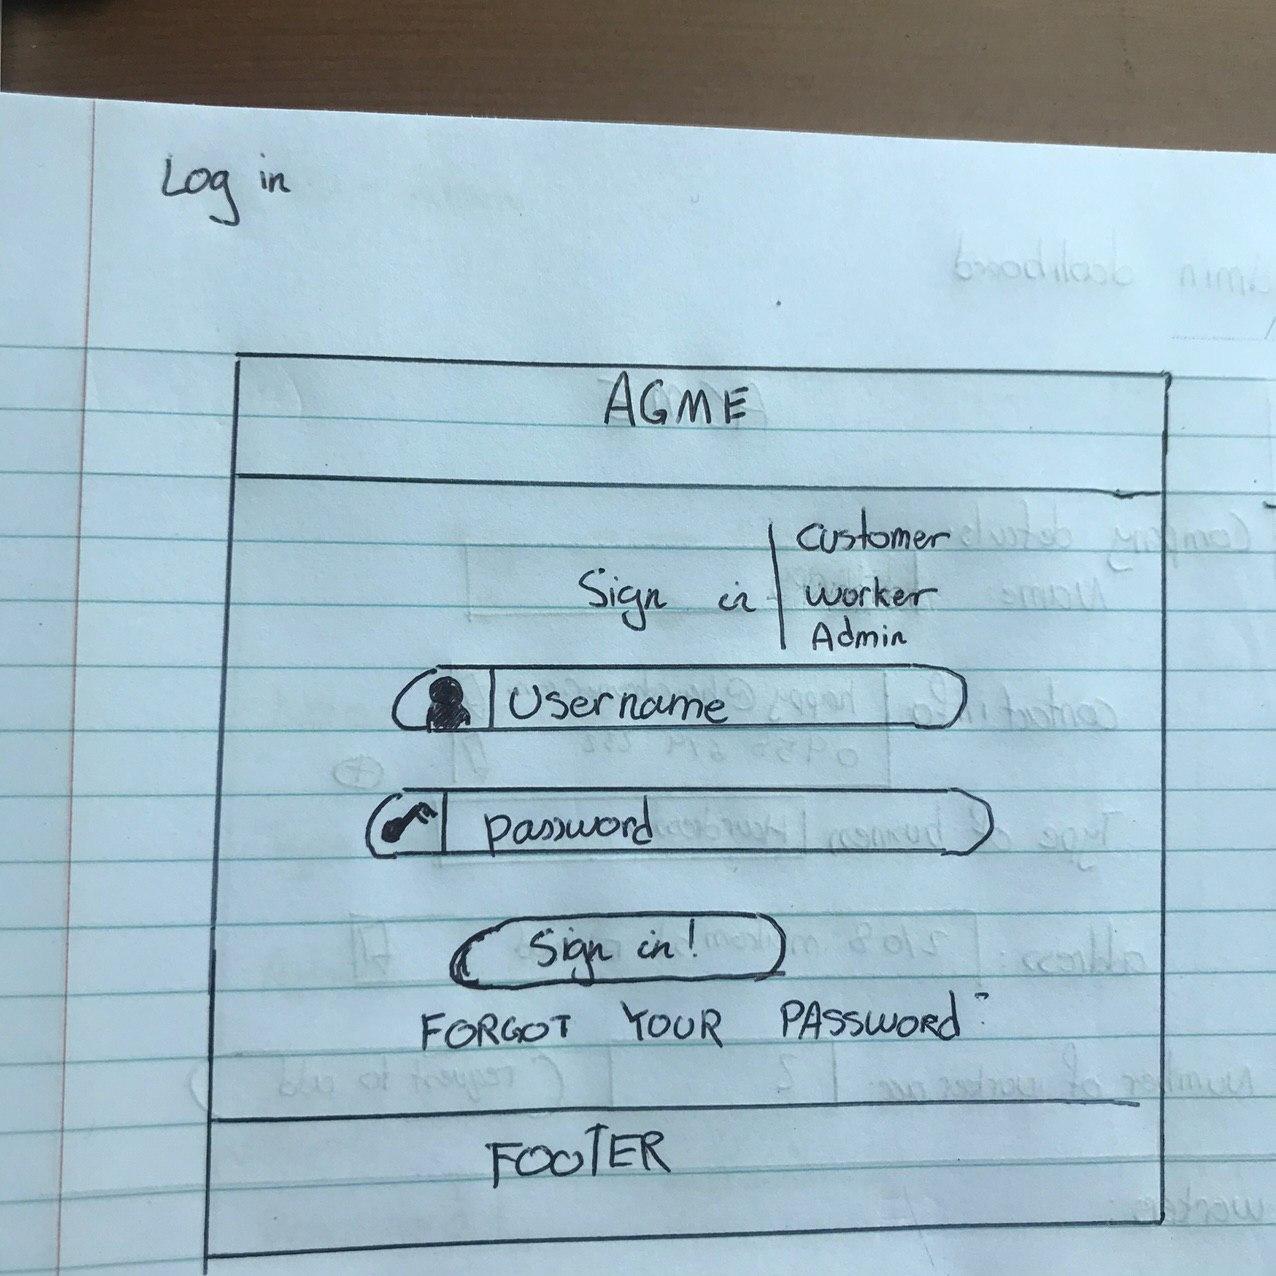 Log in
AGME
Customer
Sign in
Worker
Admin
Username
password
Sign in!
FORGOT YOUR PASSWORD?
FOOTER